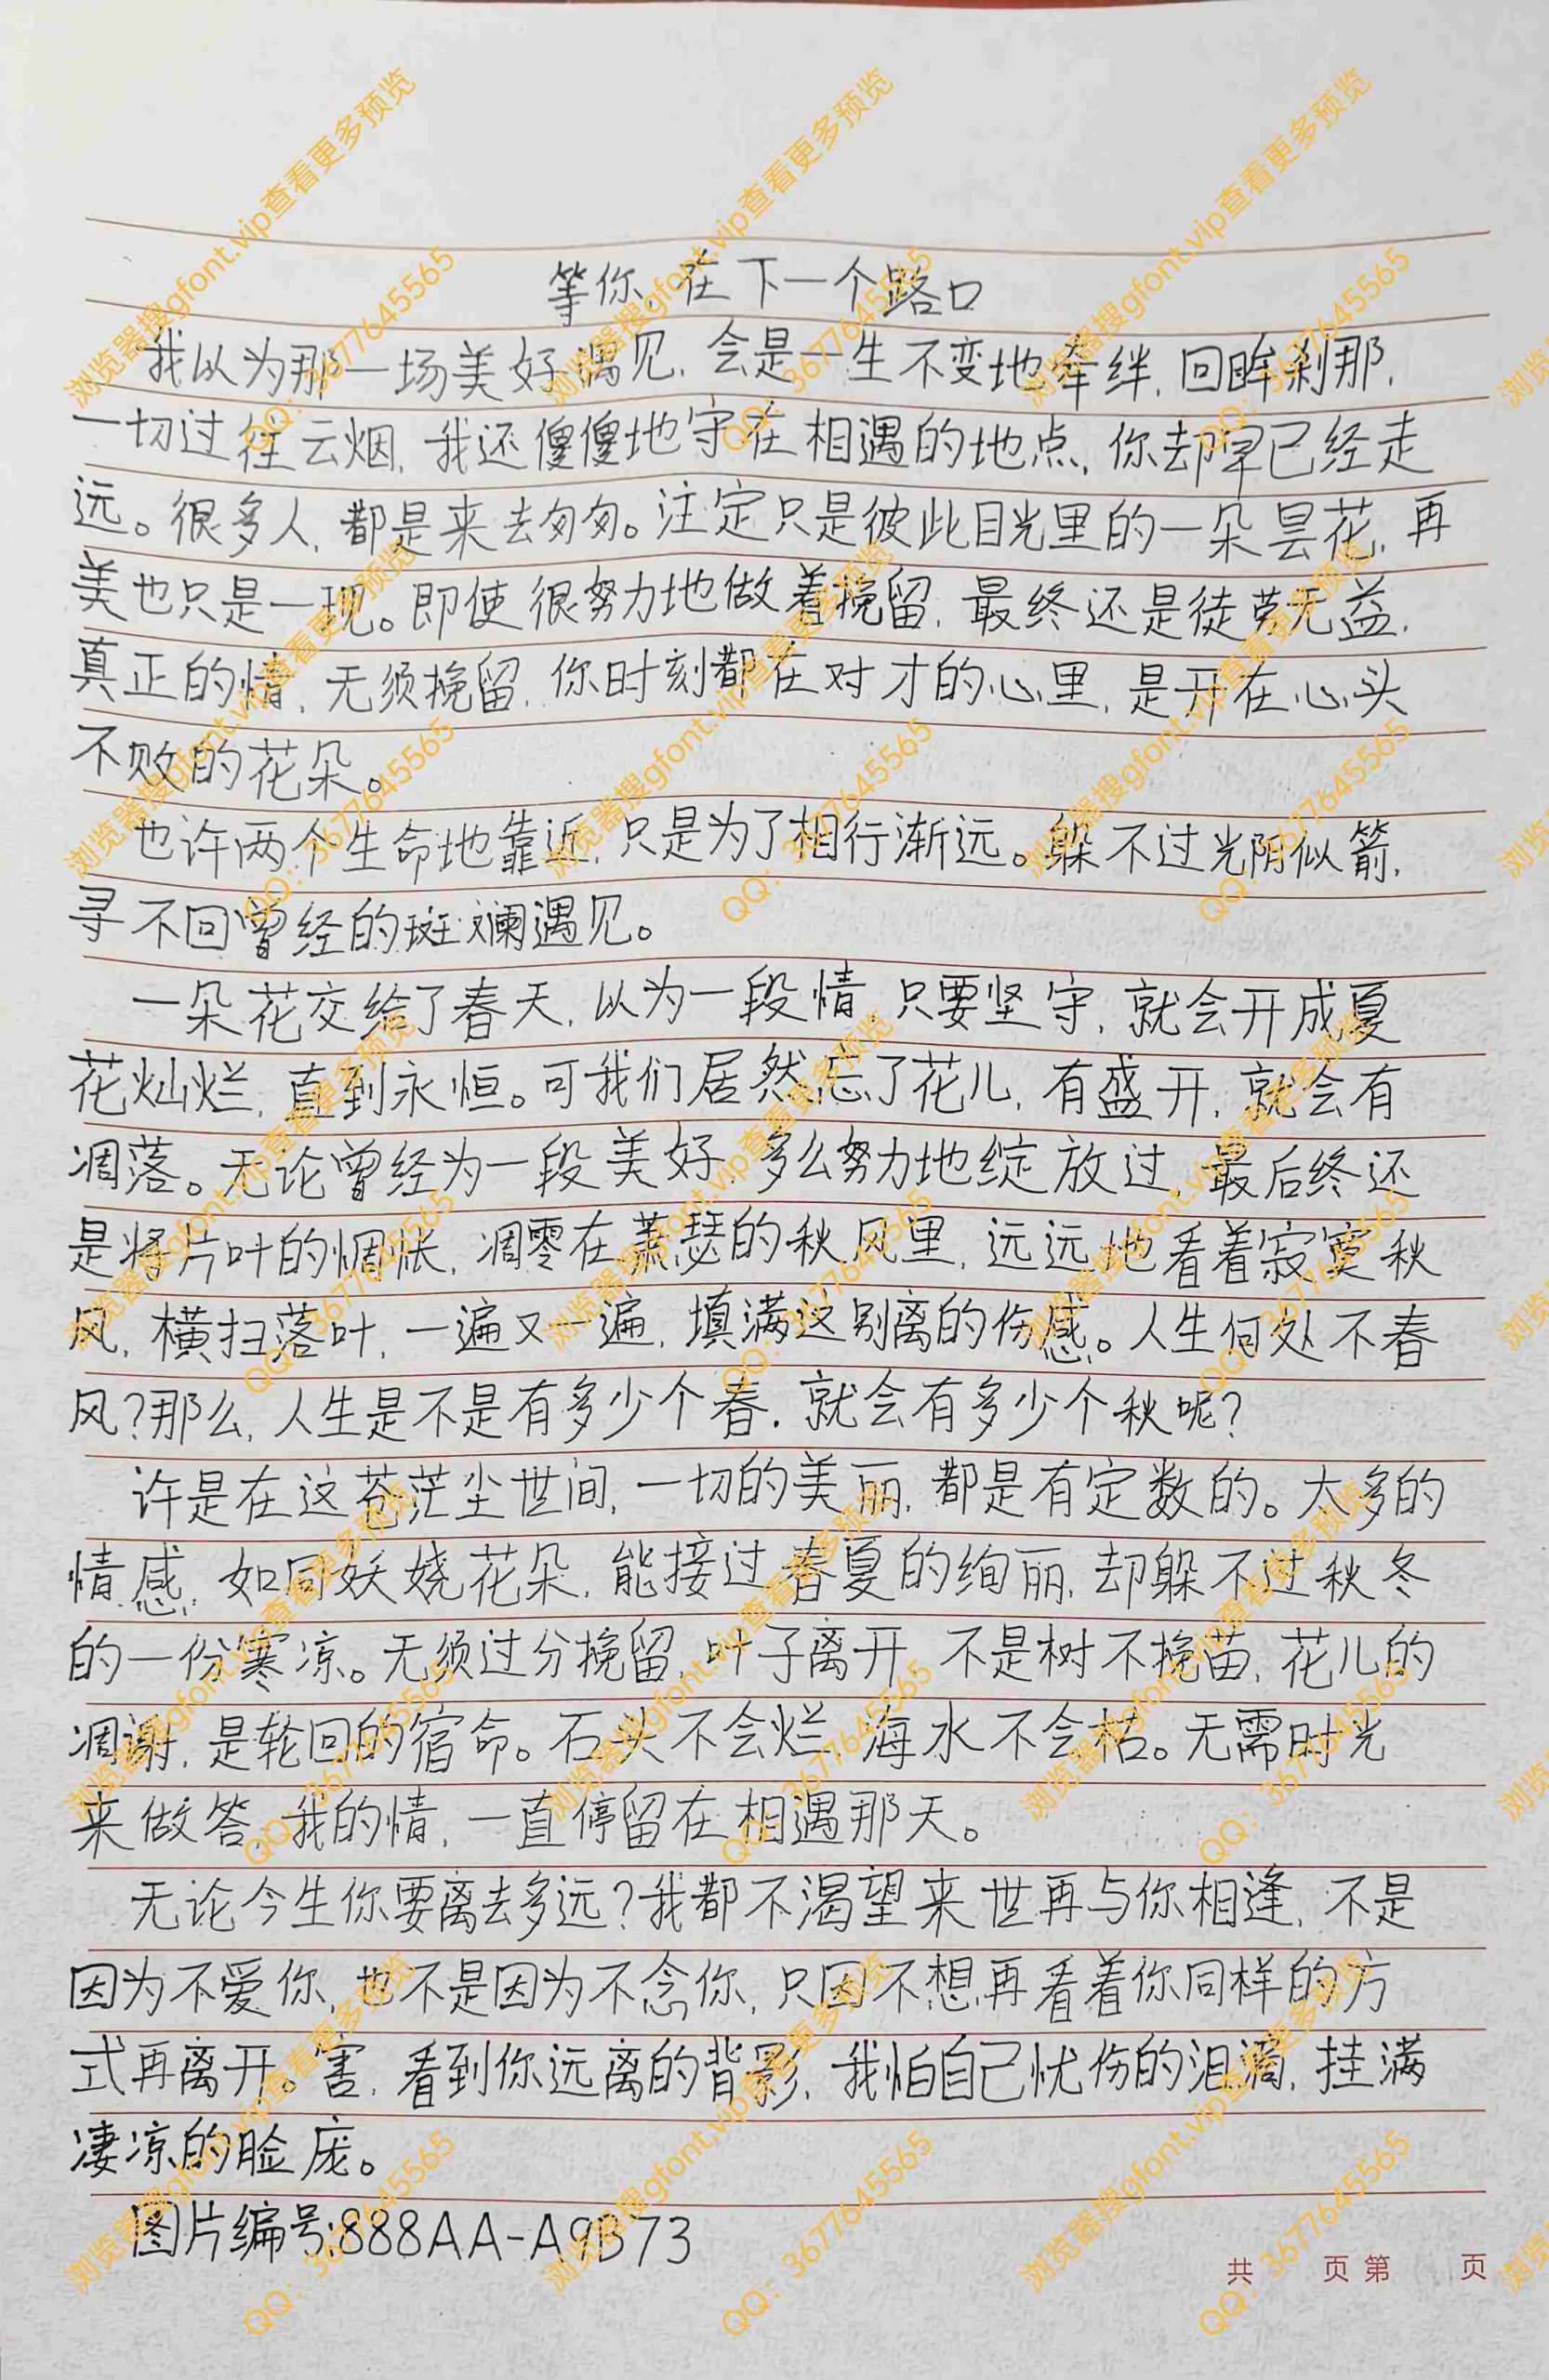 等你,在下一个路口
我以为那一场美好遇见,会是一生不变地牵绊,回眸刹那,
一切过往云烟,我还傻傻地守在相遇的地点,你却早已经走
远。很多人,都是来去匆匆。注定只是彼此目光里的一朵昙花,再
美也只是一现。即使很努力地做着挽留,最终还是徒劳无益,
真正的情,无须挽留,你时刻都在对才的心里,是开在心头
不败的花朵。
也许两个生命地靠近,只是为了相行渐远。躲不过光阴似箭,
寻不回曾经的斑斓遇见。
一朵花交给了春天,以为一段情,只要坚守,就会开成夏
花灿烂,直到永恒。可我们居然忘了花儿,有盛开,就会有
凋落。无论曾经为一段美好,多么努力地绽放过,最后终还
是将片叶的惆怅,凋零在萧瑟的秋风里,远远地看着寂寞秋
风,横扫落叶,一遍又一遍,填满这别离的伤感。人生何处不春
风?那么,人生是不是有多少个春,就会有多少个秋呢?
许是在这苍茫尘世间,一切的美丽,都是有定数的。大多的
情感,如同妖娆花朵,能接过春夏的绚丽,却躲不过秋冬
的一份寒凉。无须过分挽留,叶子离开,不是树不挽苗,花儿的
凋谢,是轮回的宿命。石头不会烂,海水不会枯。无需时光
来做答,我的情,一直停留在相遇那天。
无论今生你要离去多远?我都不渴望来世再与你相逢,不是
因为不爱你,也不是因为不念你,只因不想再看着你同样的方
式再离开。害,看到你远离的背影,我怕自己忧伤的泪滴,挂满
凄凉的脸庞。
图片编号:888AA-A9B73
共 页 第 页
浏览器搜gfont.vip查看更多预览
QQ: 3677645565